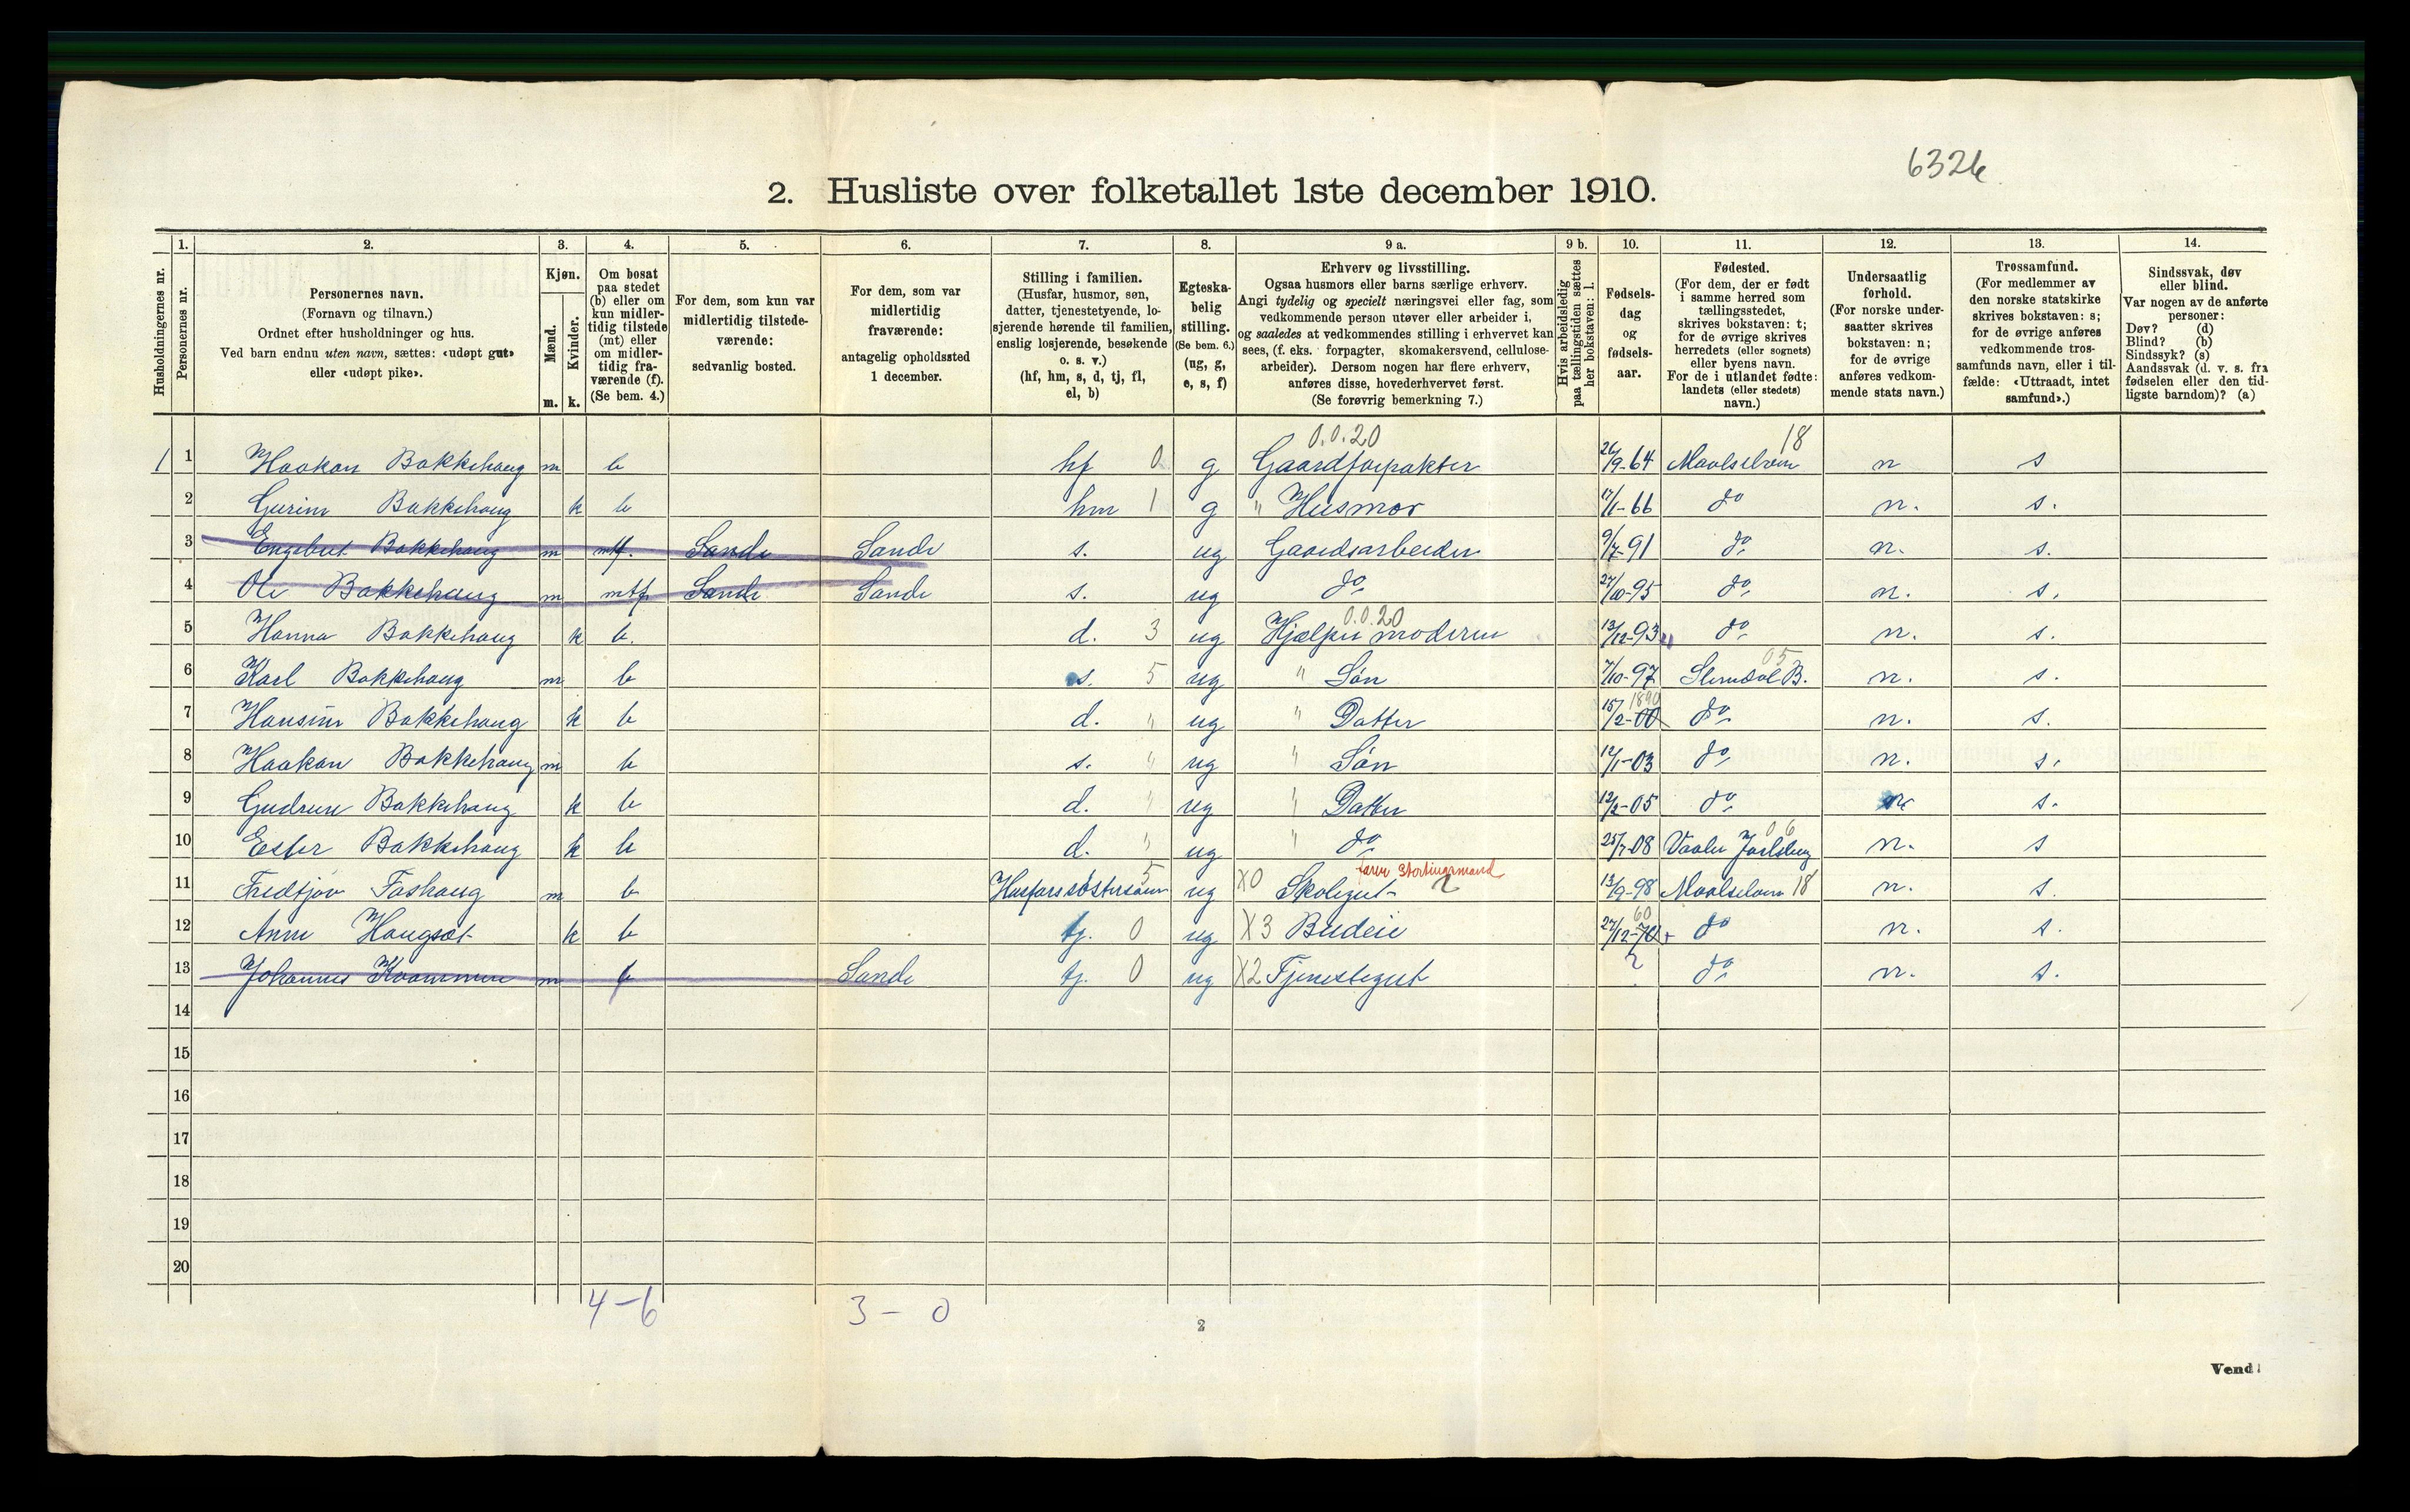 6326
2. Husliste over folketallet 1ste december 1910.
Husholdningernes nr.
1.
Personernes nr.
2.
Personernes navn.
(Fornavn og tilnavn.)
Ordnet efter husholdninger og hus.
Ved barn endnu uten navn, sættes: «udøpt gut»
eller «udøpt pike».
3.
Kjøn.
Mænd.
Kvinder.
m. k.
4.
Om bosat
paa stedet
(b) eller om
kun midler-
tidig tilstede
(mt) eller
om midler-
tidig fra-
værende (f).
(Se bem. 4.)
5.
For dem, som kun var
midlertidig tilstede-
værende:
sedvanlig bosted.
6.
For dem, som var
midlertidig
fraværende:
antagelig opholdssted
1 december.
7.
Stilling i familien.
(Husfar, husmor, søn,
datter, tjenestetyende, lo-
sjerende hørende til familien,
enslig losjerende, besøkende
o. s. v.)
(hf, hm, s, d, tj, fl,
el, b)
8.
Egteska-
belig
stilling.
(Se bem. 6.)
(ug, g,
e, s, f)
9 a.
Erhverv og livsstilling.
Ogsaa husmors eller barns særlige erhverv.
Angi tydelig og specielt næringsvei eller fag, som
vedkommende person utøver eller arbeider i,
og saaledes at vedkommendes stilling i erhvervet kan
sees, (f. eks. forpagter, skomakersvend, cellulose-
arbeider). Dersom nogen har flere erhverv,
anføres disse, hovederhvervet først.
(Se forøvrig bemerkning 7.)
9 b.
Hvis arbeidsledig
paa tællingstiden sættes
her bokstaven: l.
10.
Fødsels-
dag
og
fødsels-
aar.
11.
Fødested.
(For dem, der er født
i samme herred som
tællingsstedet,
skrives bokstaven: t;
for de øvrige skrives
herredets (eller sognets)
eller byens navn.
For de i utlandet fødte:
landets (eller stedets)
navn.)
12.
Undersaatlig
forhold.
(For norske under-
saatter skrives
bokstaven: n;
for de øvrige
anføres vedkom-
mende stats navn.)
13.
Trossamfund.
(For medlemmer av
den norske statskirke
skrives bokstaven: s;
for de øvrige anføres
vedkommende tros-
samfunds navn, eller i til-
fælde: «Uttraadt, intet
samfund».)
14.
Sindssvak, døv
eller blind.
Var nogen av de anførte
personer:
Døv? (d)
Blind? (b)
Sindssyk? (s)
Aandssvak (d. v. s. fra
fødselen eller den tid-
ligste barndom)? (a)
0.0.20 18
1 1 Haakon Bakkehaug m b hf 0 g Gaardforpakter 26/9-64 Maalselven n s
2 Gurine Bakkehaug k b hm 1 g " Husmor 17/1-66 do n. s.
3 Engebret Bakkehaug m mtf. Sande Sande s. ug Gaardsarbeider 9/7-91 do n. s.
4 Ole Bakkehaug m mtf Sande Sande s. ug do 27/10-95 do n. s.
0.0.20
5 Hanna Bakkehaug k b. d. 3 ug Hjælper moderen 13/12-93 do n. s.
05
6 Karl Bakkehaug m b s. 5 ug " Søn 7/10-97 Slemdal B. n. s.
1890
7 Hansine Bakkehaug k b d. " ug " Datter 15/2-00 do n. s.
8 Haakon Bakkehaug m b s. " ug " Søn 12/1-03 do n. s.
9 Gudrun Bakkehaug k b d. " ug " Datter 12/2-05 do n. s.
06
10 Ester Bakkehaug k b d. " ug " do 25/7-08 Vaaler Jarlsberg n. s
farer Stortingsmand
11 Fredtjov Foshaug m b Husfars søstersøn 5 ug X0 Skolegut 2 13/9-98 Maalselven 18 n. s.
60
12 Anne Haugsæt k b tj. 0 ug X3 Budeie 27/12-70 do n. s.
13 Johannes Kvammen m b Sande tj. 0 ug X2 Tjenestegut ? do n. s.
14
15
16
17
18
19
20
4-6 3-0
2
Vend!